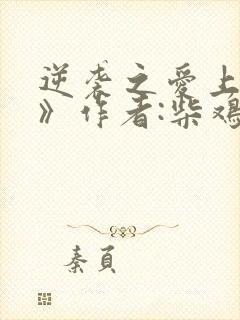 逆袭之爱上
》作者:柴鸡
秦頁